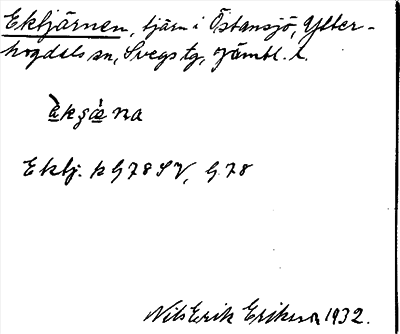 Ektjärnen, tjärn i Östansjö, Ytter-
hogdals sn, Svegs tg, Jämtl. l.
ὰkşæ̀na
Ektj. k G 78 SV, G. 78
Nils Erik Erikson 1932.